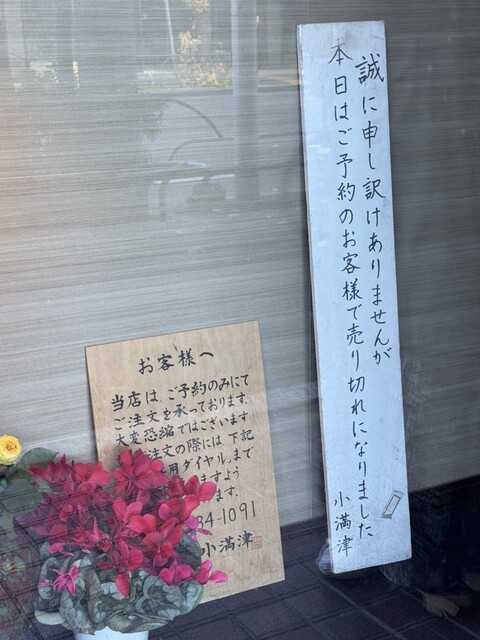 誠に申し訳けありませんが
本日はご予約のお客様で売り切れになりました
小満津
お客様へ
当店は、ご予約のみにて
ご注文を承っております。
大変恐縮ではございます
注文の際には、下記
用ダイヤルまで
ますよう
ます。
34-1091
小満津